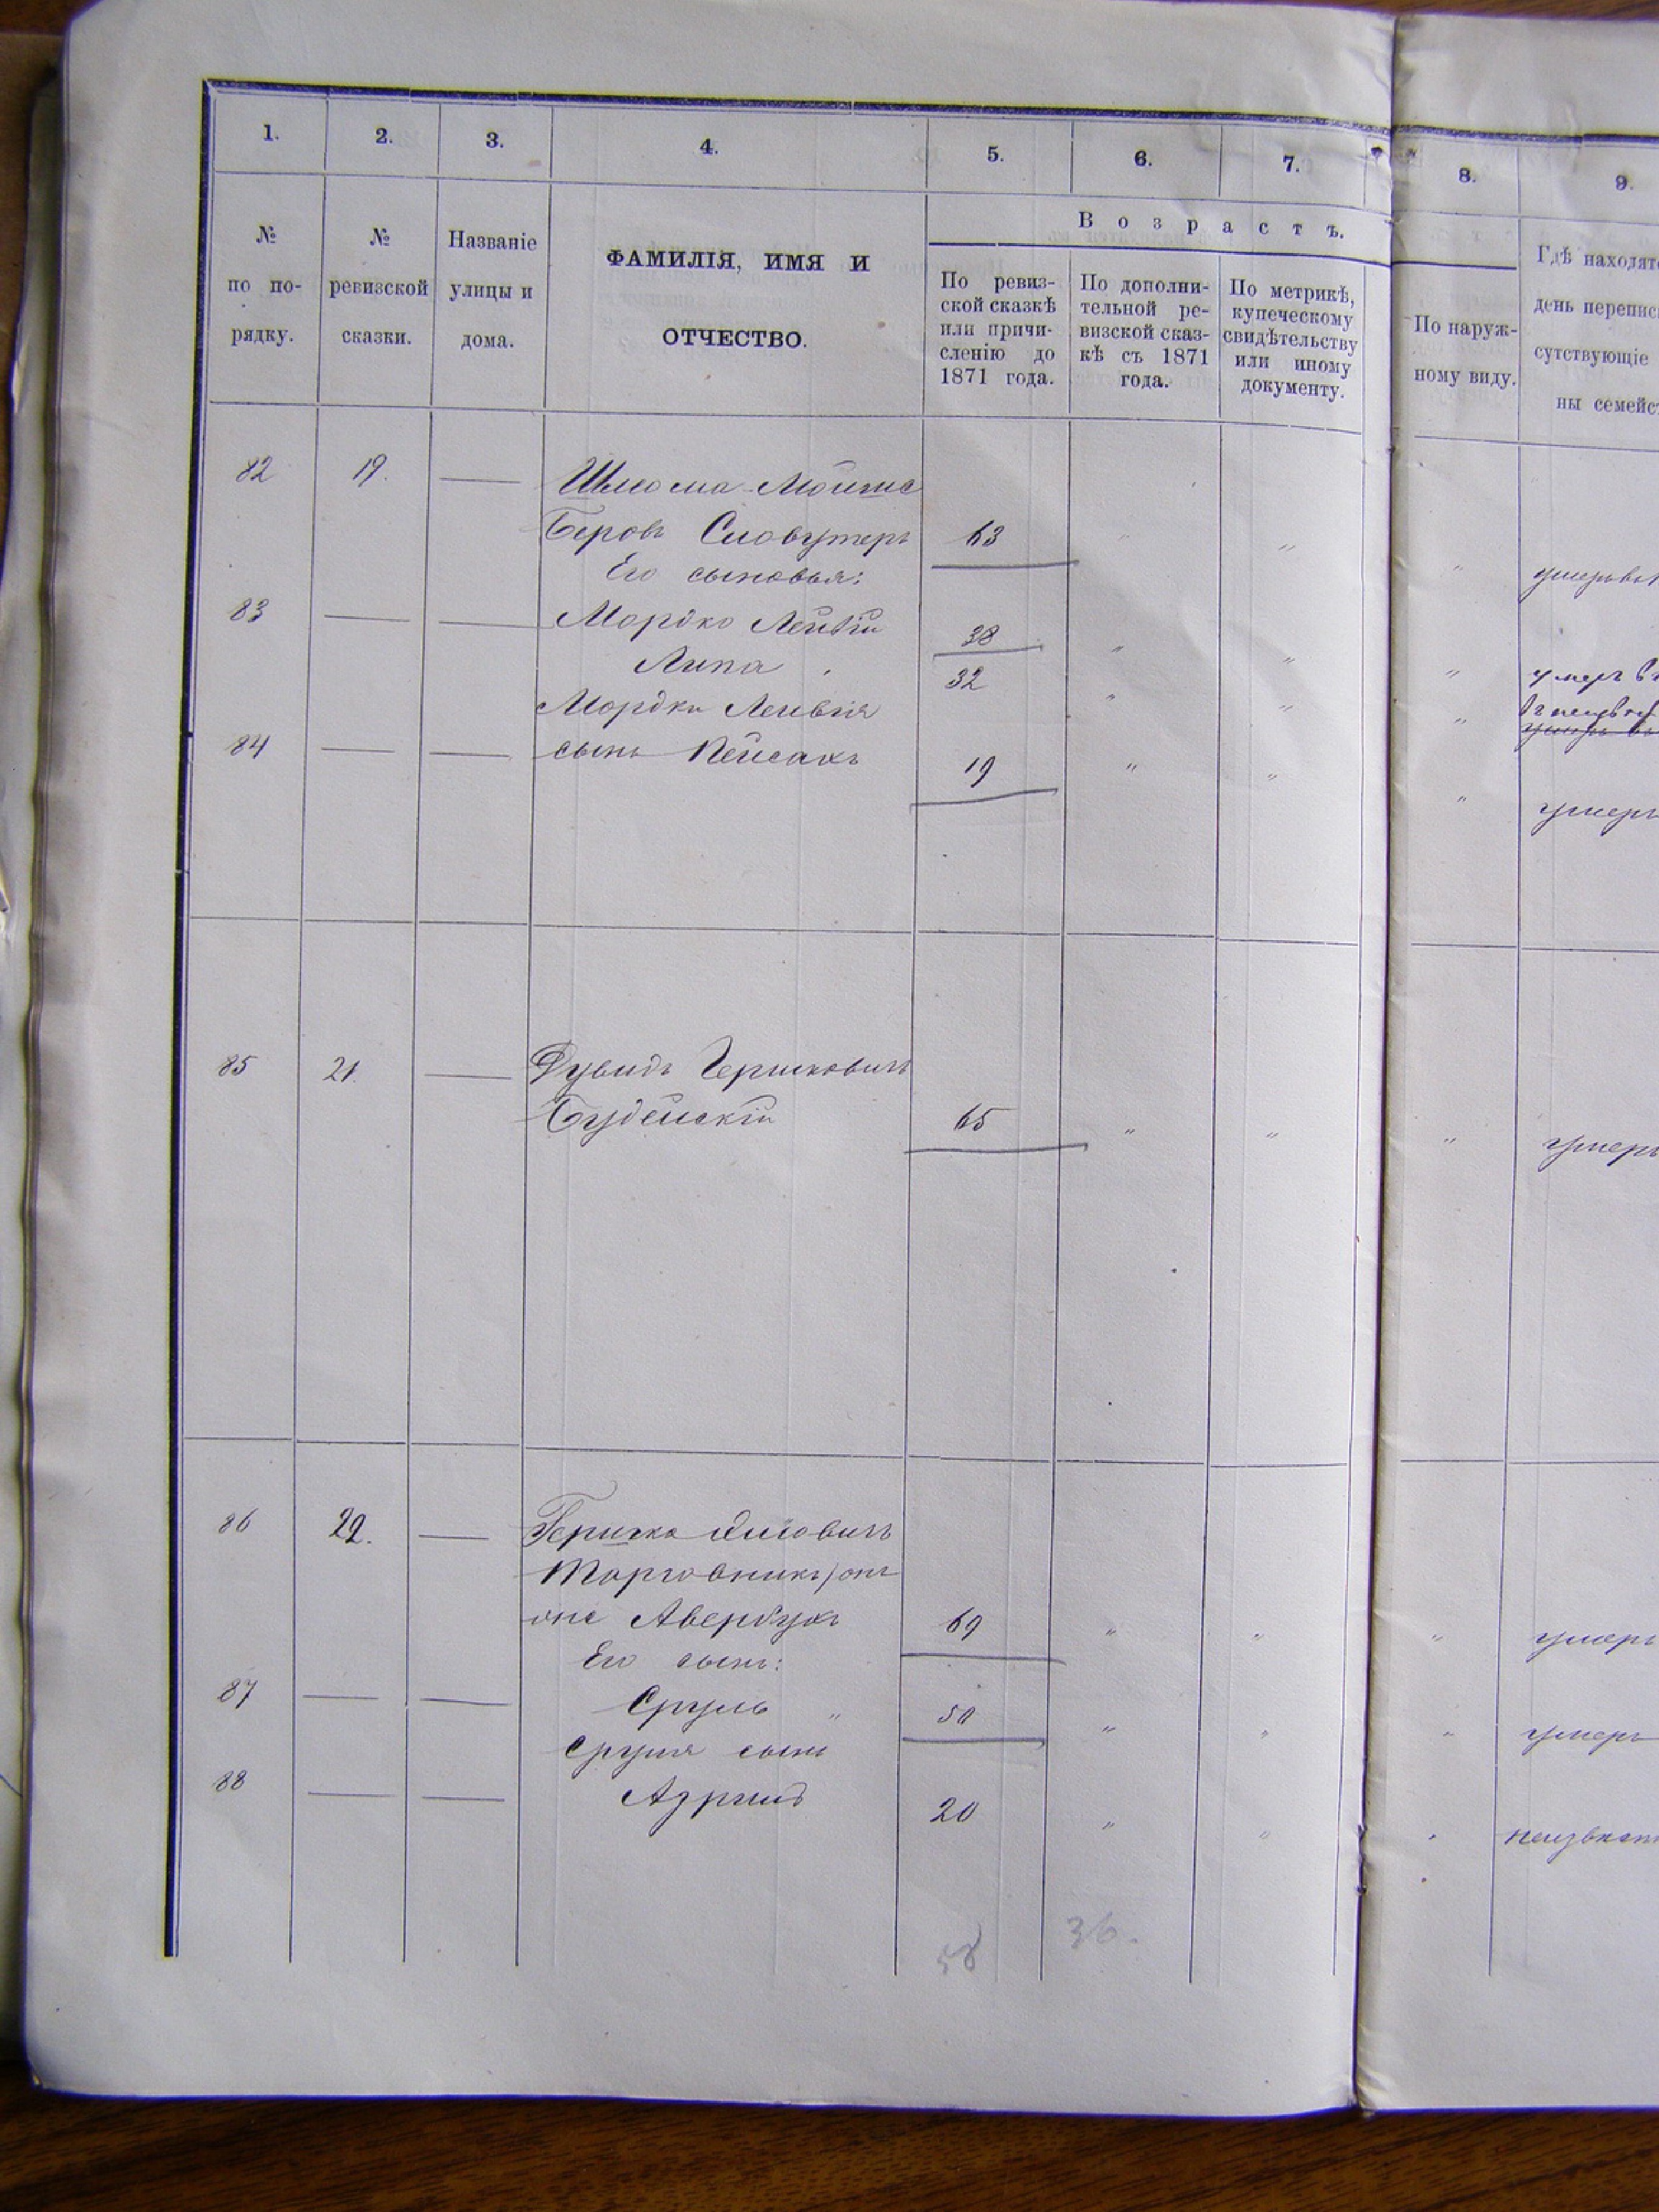 1. 2. 3. 4. 5. 6. 7. 8. 9.
№ по по-рядку.
№ ревизской сказки.
Названіе улицы и дома.
ФАМИЛІЯ, ИМЯ И
ОТЧЕСТВО.
Возрастъ.
По ревиз-
ской сказкѣ
или причи-
сленію до
1871 года.
По дополни-
тельной ре-
визской сказ-
кѣ съ 1871
года.
По метрикѣ,
купеческому
свидѣтельству
или иному
документу.
По наруж-
ному виду.
Гдѣ находят
день перепис
сутствующіе
ны семейс
82 19. — Шлиома Мошис
Беровъ Словутеръ 63 " " "
Его сыновья: умеръ
83 — — Мордко Лейбъ 38 " " " умеръ
Липа 32 " " "
Мордки Лейбы
84 — — сынъ Пейсахъ 19 " " " умеръ
85 21. — Дувидъ Гершковичъ
Будейскій 65 " " " умеръ
86 22. — Гершко
Торговникъ онъ
же Авербухъ 69 " " " умеръ
Его сынъ:
87 — — Сруль " 50 " " " умеръ
Сруля сынъ
88 — — Азріилъ 20 " " " неизвѣстн
58 36.